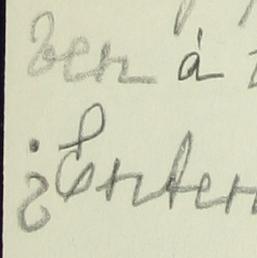 ben á
¿Enten